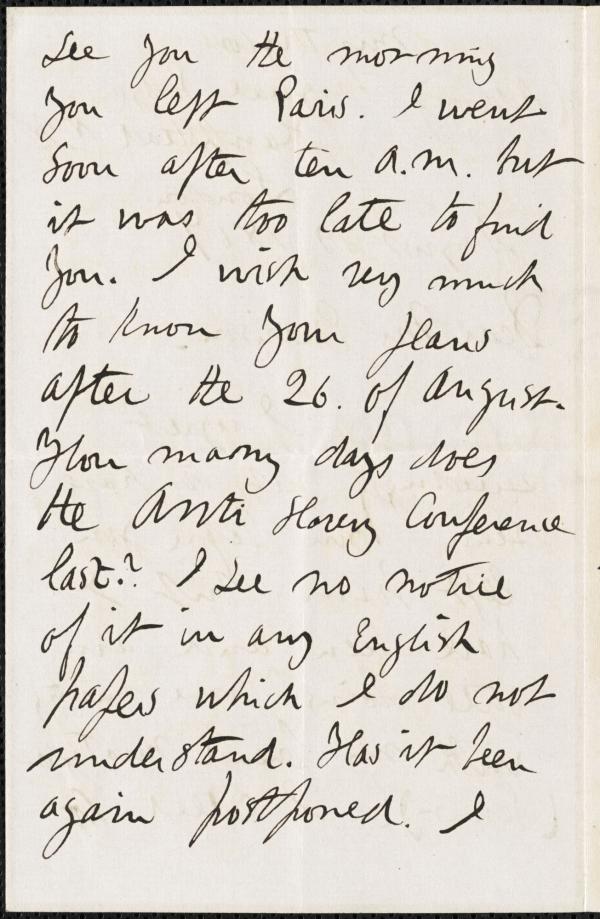 See you the morning
you left Paris. I went
soon after ten a.m. but
it was too late to find
you. I wish very much
to know your plans
after the 26. of August.
How many days does
the Anti Slavery Conference
last.? I see no notice
of it in any English
papers which I do not
understand. Has it been
again postponed. I